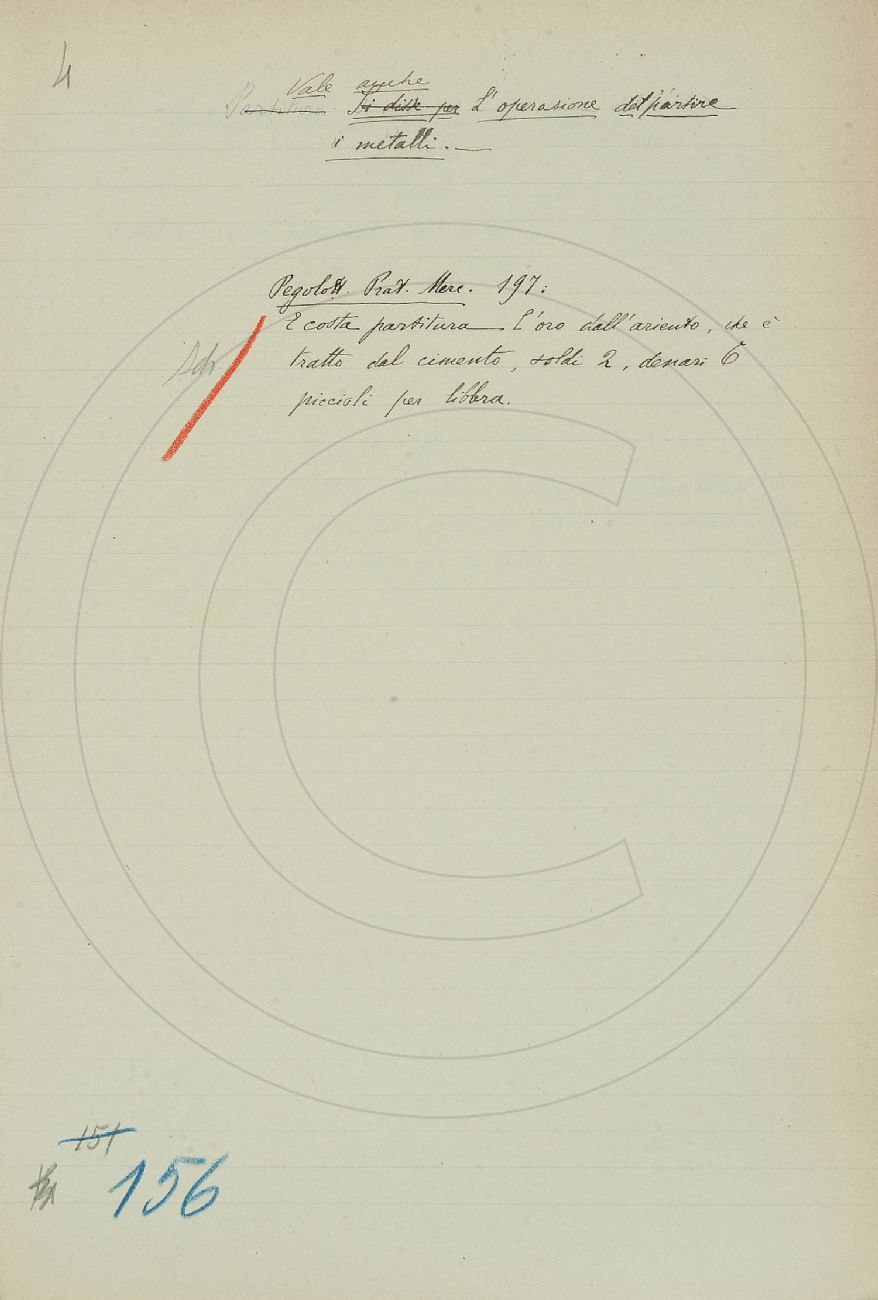 4
Vale anche
Partitura. Si disse per L'operazione del partire
i metalli. —
Pegolott. Prat. Merc. 197:
E costa partitura l'oro dall'ariento, che è
tratto dal cimento, soldi 2, denari 6
piccioli per libbra.
151
156